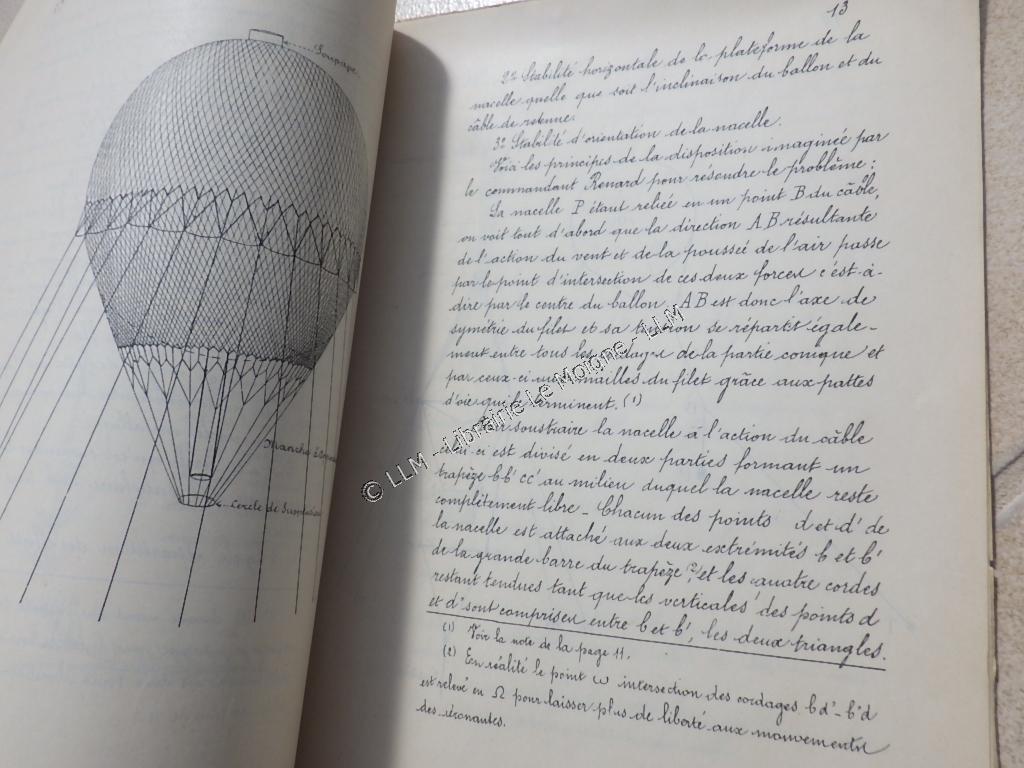 Soupape
Manche
Cercle de Suspension
13
2º Stabilité horizontale de le plateforme de la
nacelle quelle que soit l'inclinaison du ballon et du
câble de retenue.
3º Stabilité d'orientation de la nacelle.
Voici les principes de la disposition imaginée par
le commandant Renard pour resoudre le problème :
La nacelle P étant reliée en un point B du câble,
on voit tout d'abord que la direction AB résultante
de l'action du vent et de la poussée de l'air passe
par le point d'intersection de ces deux forces c'est-à-
dire par le centre du ballon. AB est donc l'axe de
symétrie du filet et sa se répartit égale-
ment entre tous les de la partie conique et
par ceux-ci mailles du filet grâce aux pattes
d'oie qui terminent. (1)
Pour soustraire la nacelle à l'action du câble
celui-ci est divisé en deux parties formant un
trapèze bb' cc' au milieu duquel la nacelle reste
complètement libre - Chacun des points d et d' de
la nacelle est attaché aux deux extrémités b et b'
de la grande barre du trapèze (2) et les quatre cordes
restant tendues tant que les verticales des points d
et d' sont comprises entre b et b', les deux triangles.
(1) Voir la note de la page 11.
(2) En réalité le point ω intersection des cordages bd' - b'd
est relevé en Ω pour laisser plus de liberté aux mouvements
des aéronautes.
© LLM - Librairie Le Moigne - LLM